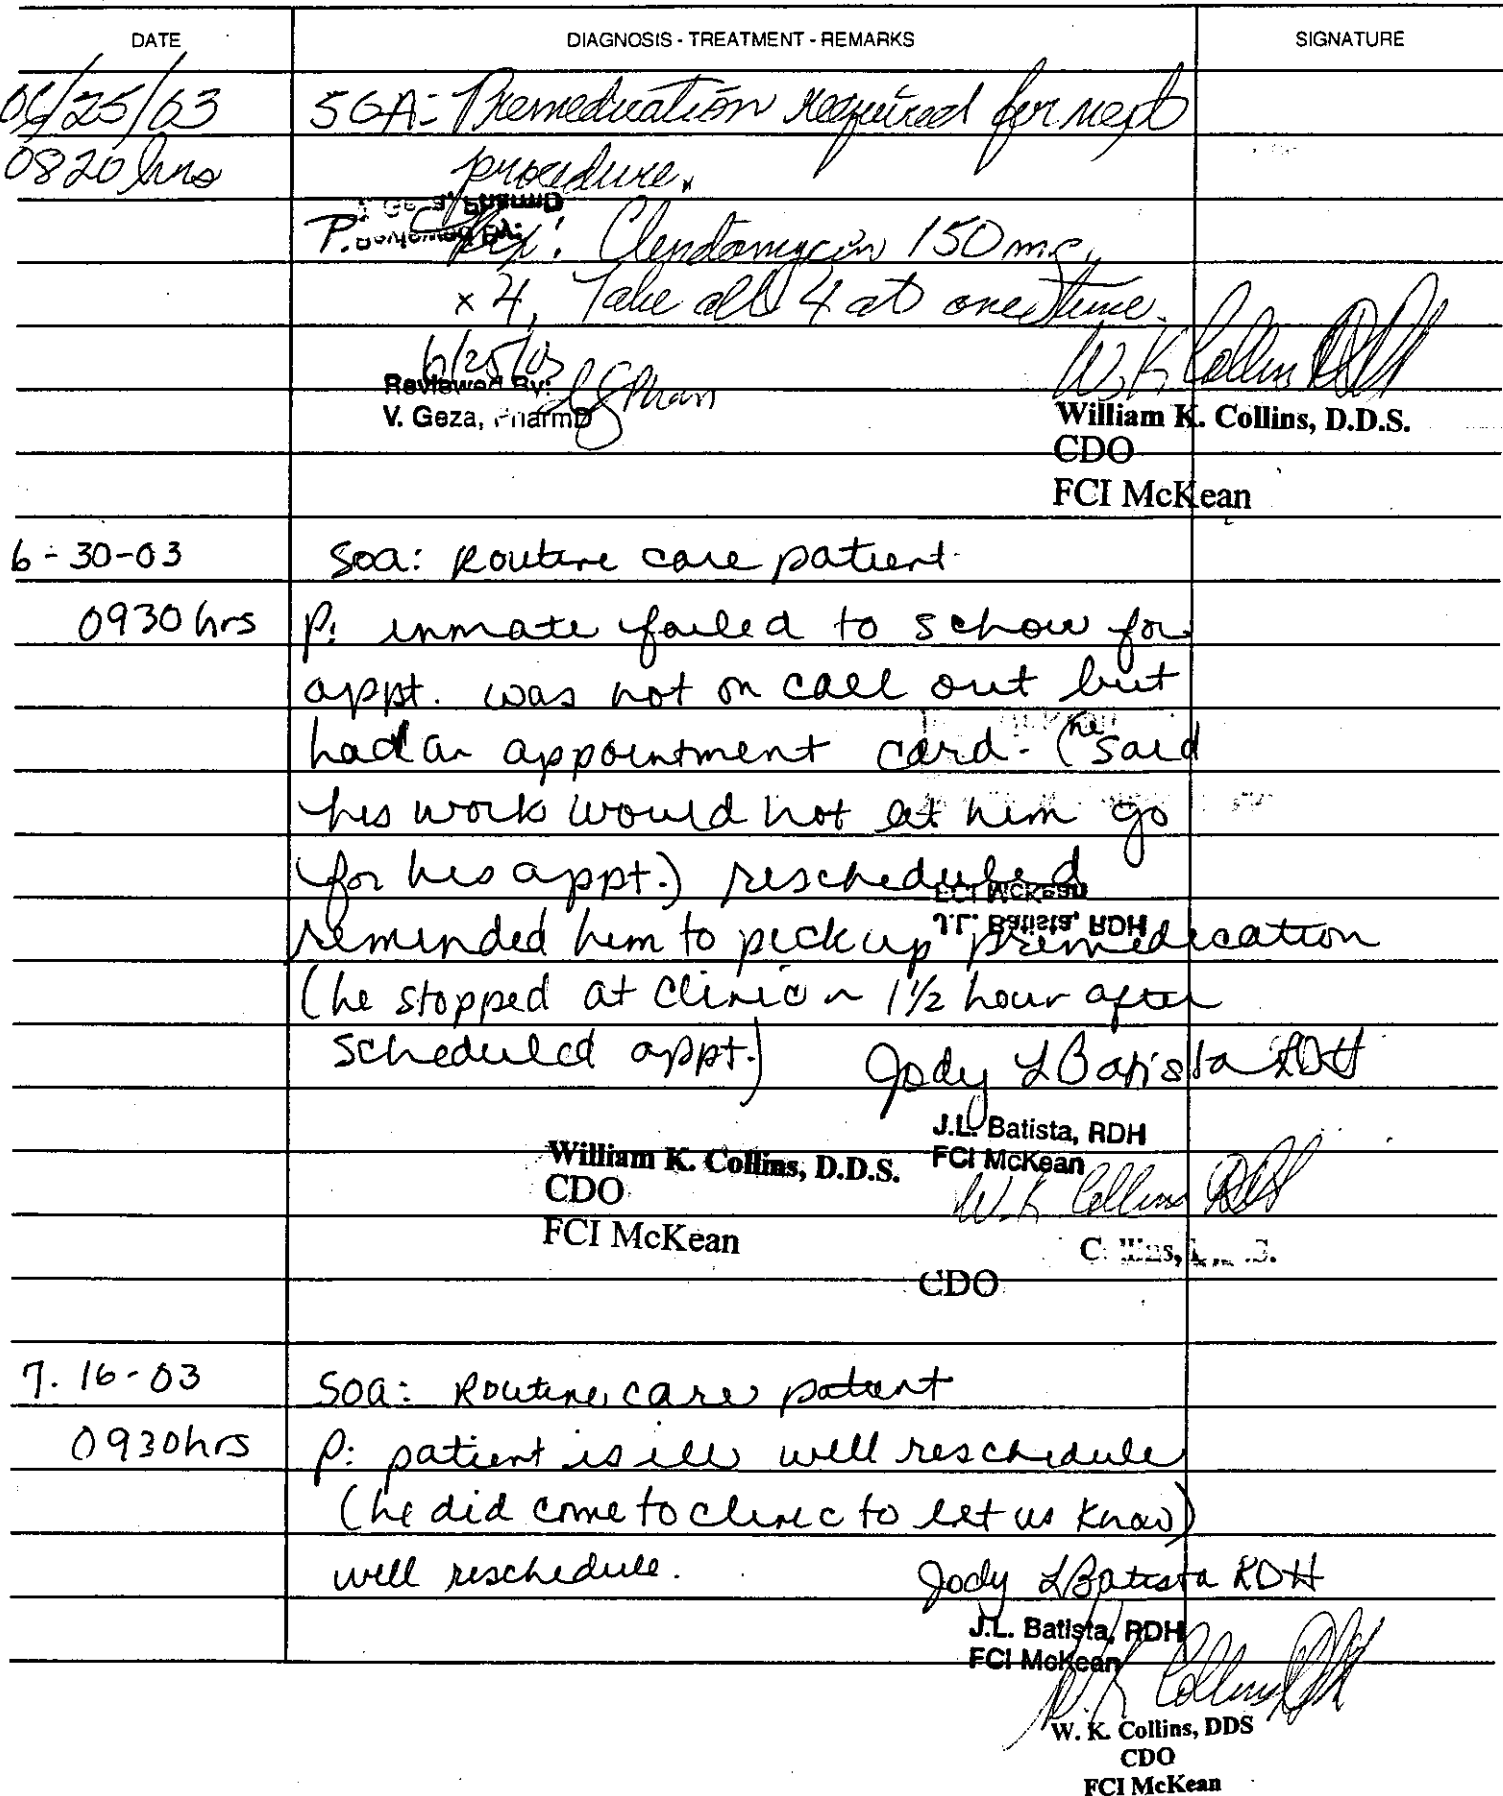 DATE DIAGNOSIS - TREATMENT - REMARKS SIGNATURE
06/25/03 SOA: Premedication required for next
0820 hrs procedure.
P. Rx: Clindamycin 150 mg
x 4, Take all 4 at one time.
6/25/03 W. K. Collins DDS
Reviewed By:
V. Geza, PharmD
William K. Collins, D.D.S.
CDO
FCI McKean
6-30-03 SOa: Routine care patient
0930 hrs P: inmate failed to schow for
appt. was not on call out but
had an appointment card - (he said
his work would not let him go
for his appt.) rescheduled
FCI McKean
J.L. Batista, RDH
reminded him to pick up premedication
(he stopped at clinic ~ 1 1/2 hour after
scheduled appt.) Jody L Batista RDH
J.L. Batista, RDH
FCI McKean
William K. Collins, D.D.S.
CDO
FCI McKean
W. K Collins DDS
CDO
7-16-03 SOa: Routine care patient
0930hrs P: patient is ill will reschedule
(he did come to clinic to let us know)
will reschedule. Jody L Batista RDH
J.L. Batista, RDH
FCI McKean
W. K Collins DDS
W. K. Collins, DDS
CDO
FCI McKean